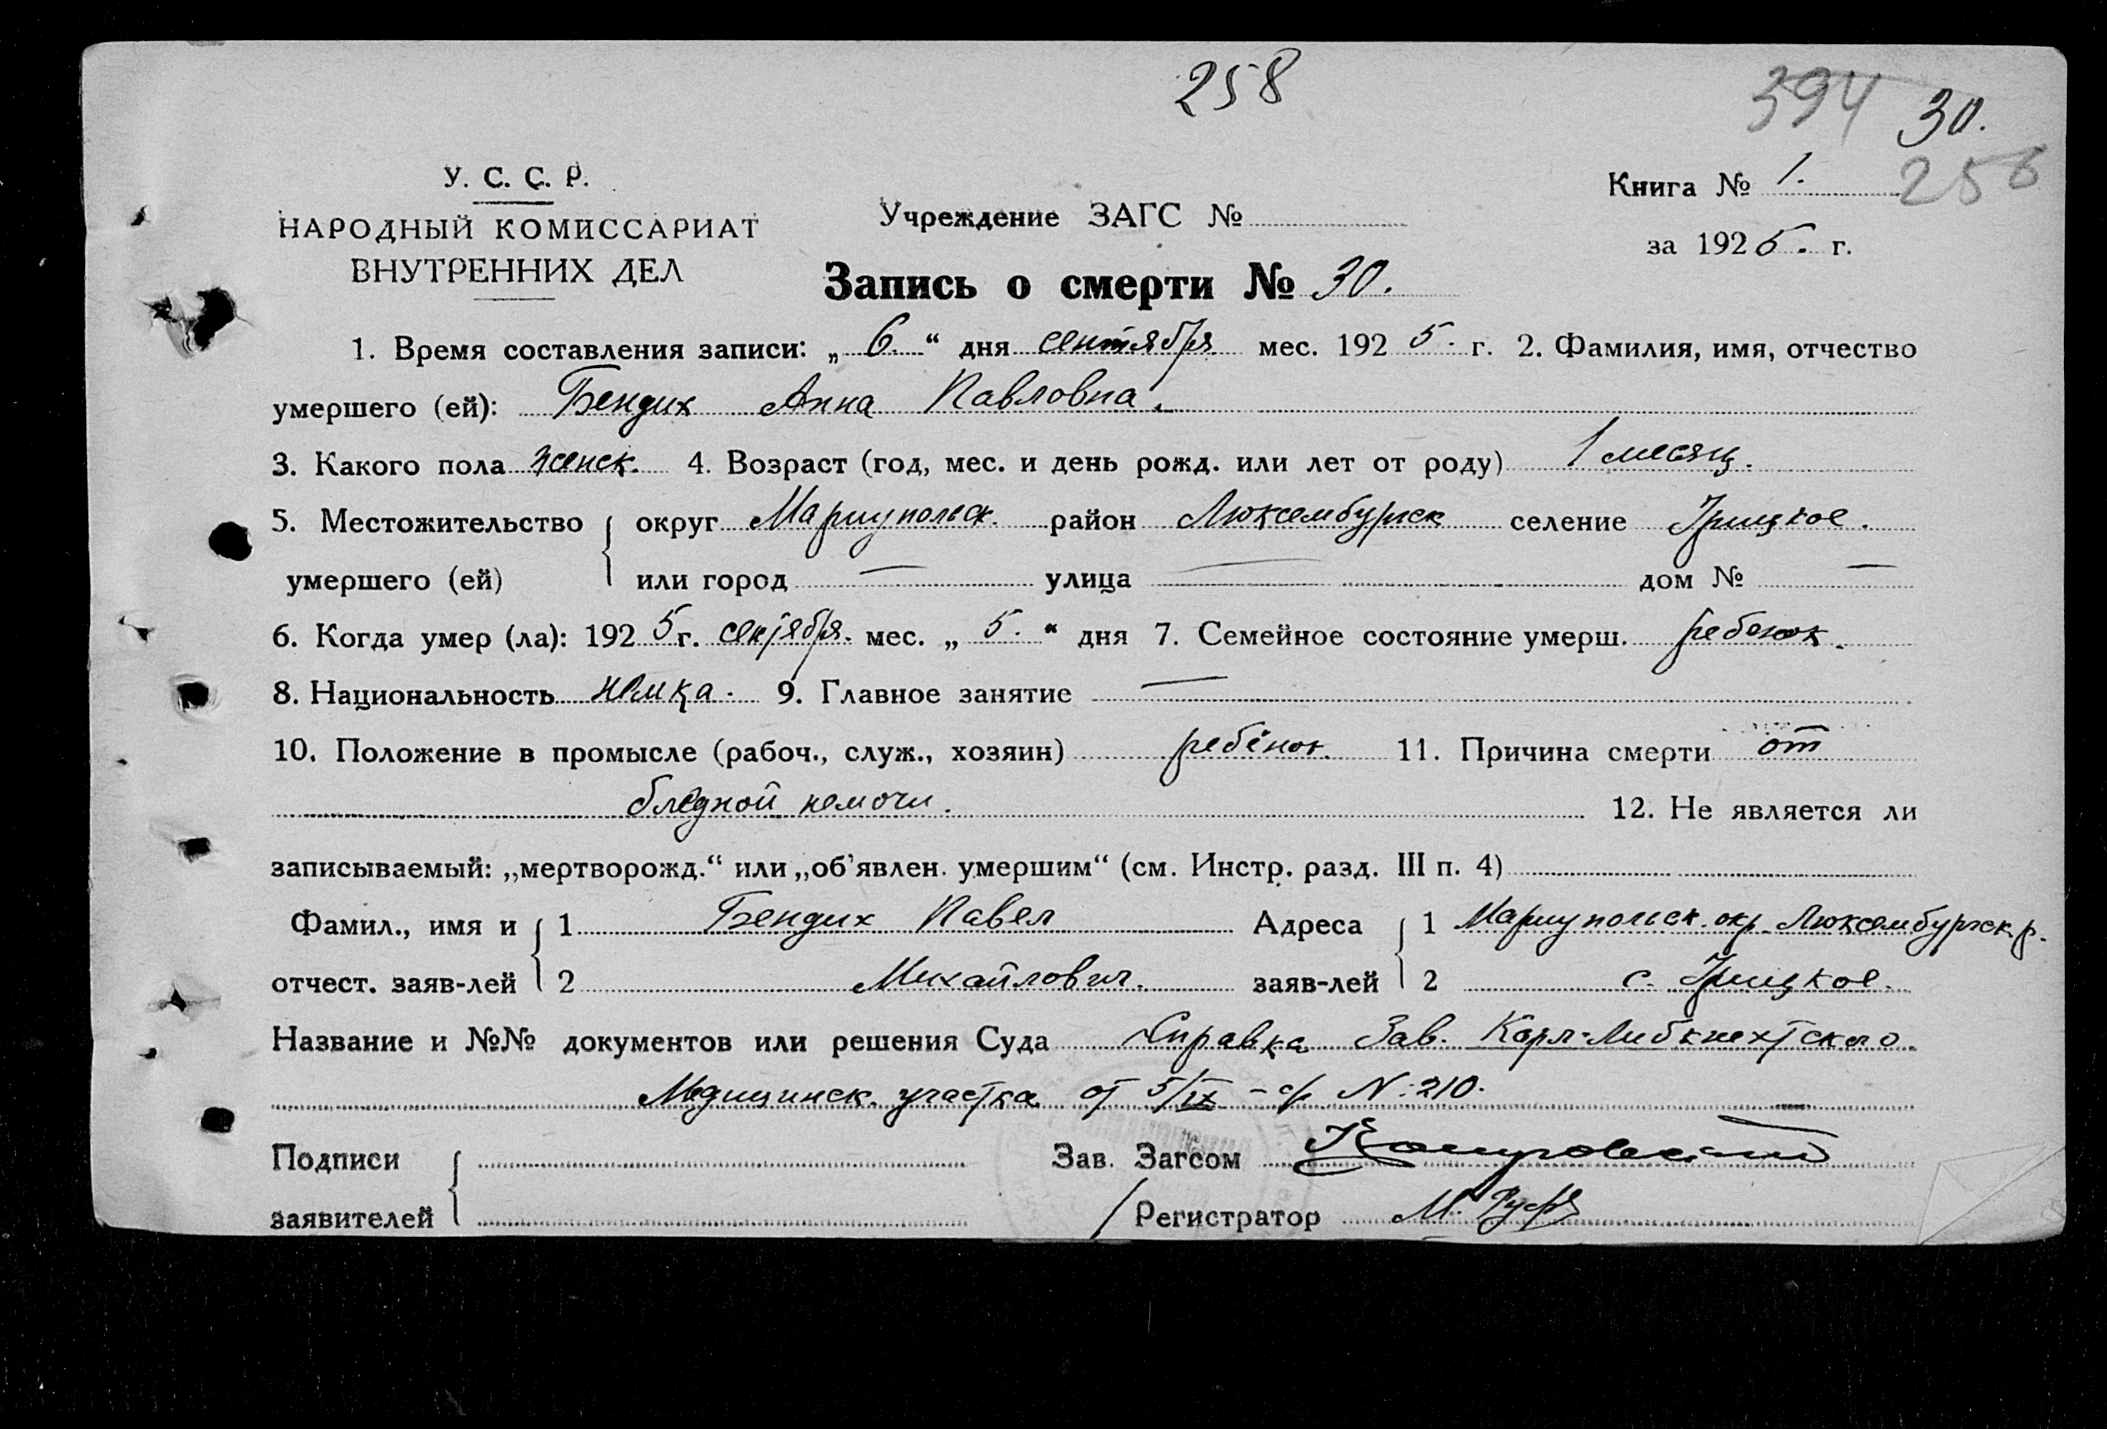 258
394 30.
256
У. С. С. Р.
НАРОДНЫЙ КОМИССАРИАТ
ВНУТРЕННИХ ДЕЛ
Учреждение ЗАГС №
Книга № 1.
за 1925. г.
Запись о смерти № 30.
1. Время составления записи: „ 6. “ дня сентября мес. 1925. г. 2. Фамилия, имя, отчество
умершего (ей): Бендих Анна Павловна.
3. Какого пола женск. 4. Возраст (год, мес. и день рожд. или лет от роду) 1 месяц.
5. Местожительство округ Мариупольск. район Люксембургск селение Грицкое.
умершего (ей) или город — улица — дом № —
6. Когда умер (ла): 1925 г. сентября. мес. „ 5. “ дня 7. Семейное состояние умерш. ребенок.
8. Национальность немка. 9. Главное занятие —
10. Положение в промысле (рабоч., служ., хозяин) ребёнок. 11. Причина смерти от
бледной немочи. 12. Не является ли
записываемый: „мертворожд.“ или „об’явлен. умершим“ (см. Инстр. разд. III п. 4)
Фамил., имя и 1 Бендих Павел Адреса 1 Мариупольск. окр. Люксембургск. р.
отчест. заяв-лей 2 Михайлович. заяв-лей 2 с. Грицкое.
Название и №№ документов или решения Суда Справка Зав. Карл-Либкнехтского
Медицинск. участка от 5/IX – с/г N: 210.
Подписи Зав. Загсом
заявителей / Регистратор М.